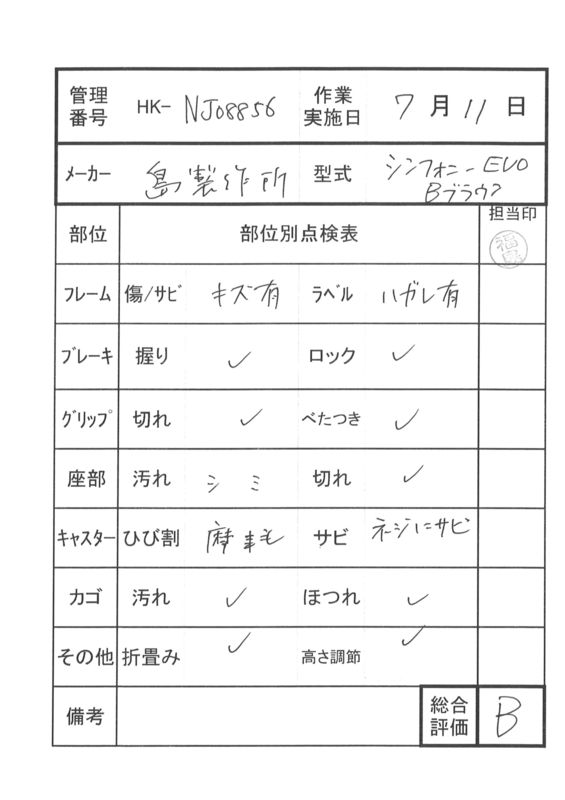 管理番号 HK- NJ08856 作業実施日 7月11日
メーカー 島製作所 型式 シンフォニーEVO
Bブラウン
部位 部位別点検表 担当印
福島
フレーム 傷/サビ キズ有 ラベル ハガレ有
ブレーキ 握り ✓ ロック ✓
グリップ 切れ ✓ べたつき ✓
座部 汚れ シミ 切れ ✓
キャスター ひび割 摩耗 サビ ネジにサビ
カゴ 汚れ ✓ ほつれ ✓
その他 折畳み ✓ 高さ調節 ✓
備考 総合評価 B